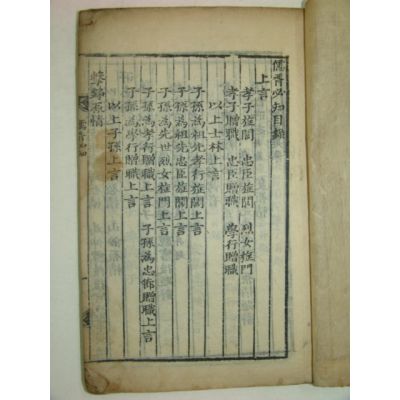 儒胥必知目錄
上言
孝子旌閭 忠臣旌閭 烈女旌門
孝子贈職 忠臣贈職 學行贈職
以上士林上言
子孫爲祖先孝行旌閭上言
子孫爲祖先忠臣旌閭上言
子孫爲先世烈女旌門上言
子孫爲孝行贈職上言 子孫爲忠節贈職上言
子孫爲學行贈職上言
以上子孫上言
擊錚原情